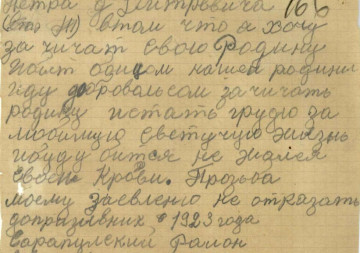 Петра Дмитровича 166
втом что я хочу
зачичат свою Родину
нашей родини
иду добровольсом зачичать
родину истать грудю за
любимую светучую жизнь
ибуду бится не жалея
своей Крови. Прозьба
моему заевлению не отказать
допразивник 1923 года
Сарапулский Район